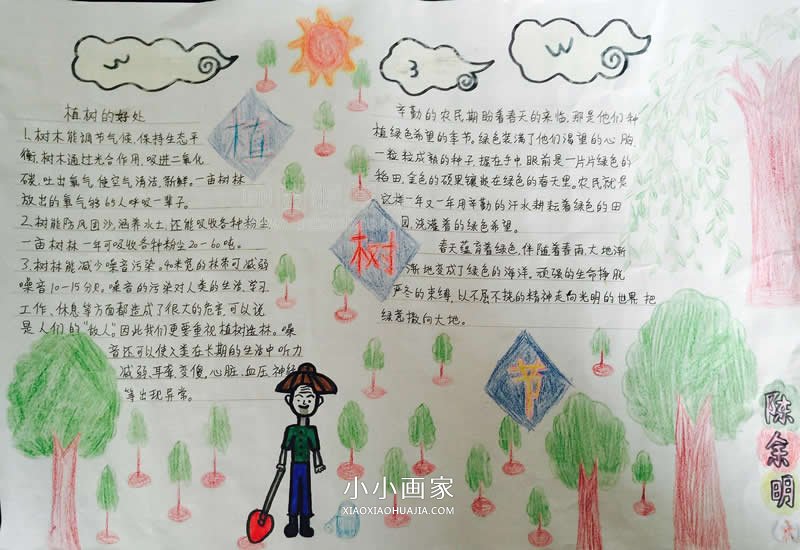 植树的好处
1.树木能调节气候,保持生态平
衡.树木通过光合作用,吸进二氧化
碳,吐出氧气,使空气清洁、新鲜。一亩树林
放出的氧气够的人呼吸一辈子。
2.树能防风固沙,涵养水土,还能吸收各种粉尘
一亩树林一年可吸收各种粉尘20-60吨。
3.树林能减少噪音污染。40米宽的林带可减弱
噪音10-15分贝。噪音的污染对人类的生活、学习
工作、休息等方面都造成了很大的危害,可以说
是人们的"敌人"。因此我们更要重视植树造林。噪
音还可以使人类在长期的生活中听力
减弱、耳聋、变傻,心脏、血压、神经
等出现异常。
植
树
节
辛勤的农民期盼着春天的来临,那是他们种
植绿色希望的季节。绿色装满了他们渴望的心胸
一粒粒成熟的种子,握在手中,眼前是一片片绿色的
稻田,金色的硕果镶嵌在绿色的春天里。农民就是
这样一年又一年用辛勤的汗水耕耘着绿色的田
园,浇灌着的绿色希望。
春天蕴育着绿色,伴随着春雨,大地渐
渐地变成了绿色的海洋。顽强的生命挣脱
严冬的束缚,以不屈不挠的精神走向光明的世界,把
绿意撒向大地。
陈余明
小小画家
XIAOXIAOHUAJIA.COM